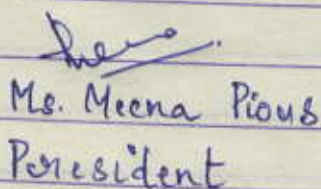 Ms. Meena Pious
President